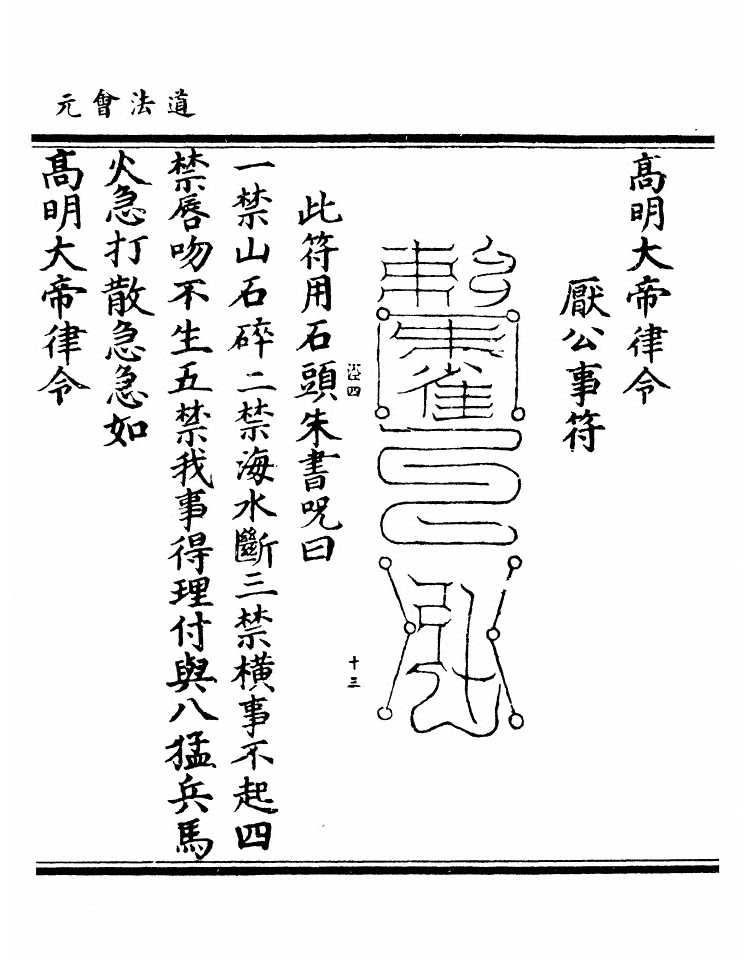 道法會元
髙明大帝律令
厭公事符
勅
朱雀
此符用石頭朱書呪曰
一禁山石碎二禁海水斷三禁橫事不起四
禁唇吻不生五禁我事得理付與八猛兵馬
火急打散急急如
髙明大帝律令
十三